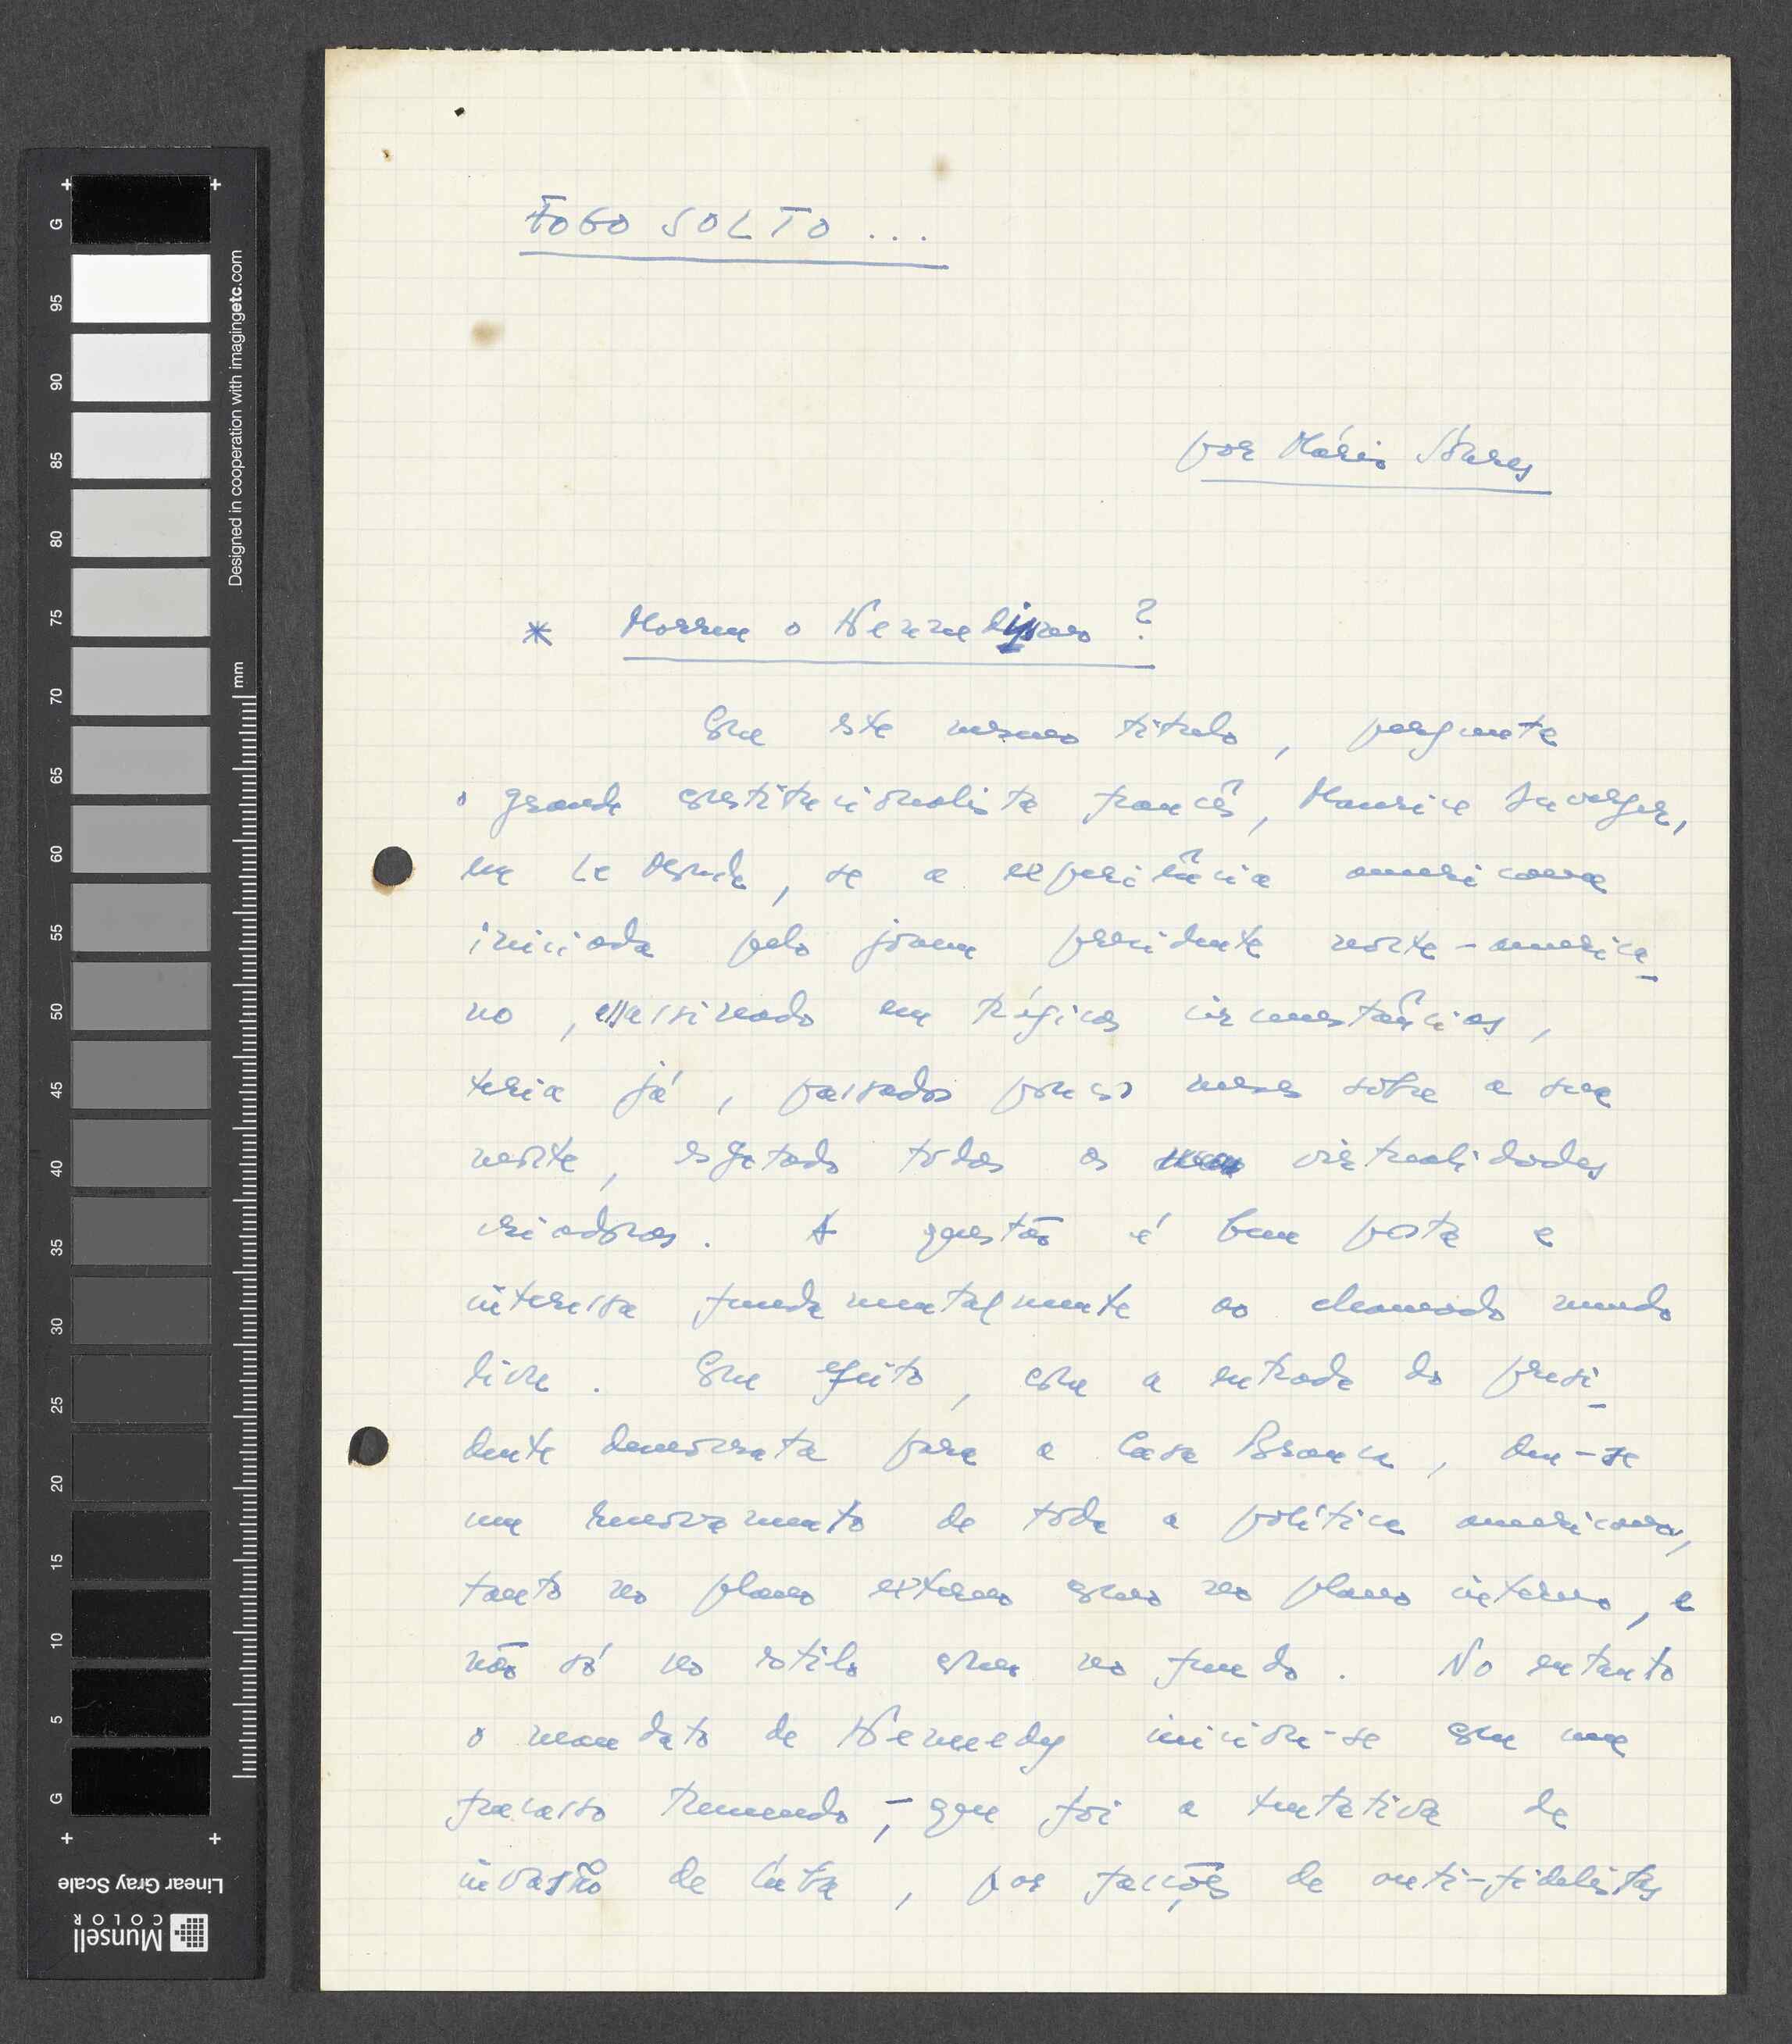 FOGO SOLTO ...
por Mário Soares
* Morreu o Kennedismo ?
Com êste mesmo titulo, pergunta
o grande constitucionalista francês, Maurice Duverger,
em Le Monde, se a experiência americana
iniciada pelo jovem presidente norte-america-
no, assassinado em trágicas circunstâncias,
teria já, passados poucos meses sôbre a sua
morte, esgotado todas as virtualidades
criadoras. A questão é bem posta e
interessa fundamentalmente ao chamado mundo
livre. Com efeito, com a entrada do presi-
dente democrata para a Casa Branca, deu-se
um renovamento de tôda a política americana,
tanto no plano externo como no plano interno, e
não só no estilo como no fundo. No entanto
o mandato de Kennedy iniciou-se com um
fracasso tremendo, - que foi a tentativa de
invasão de Cuba, por facções de anti-fidelistas
G
95
90
85
80
75
70
65
60
55
50
45
40
35
30
25
20
15
10
5
G
mm
Designed in cooperation with imagingetc.com
Linear Gray Scale
Munsell
COLOR